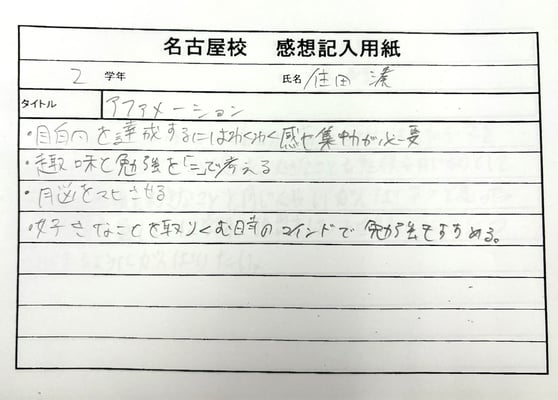 名古屋校 感想記入用紙
2 学年 氏名 住田 湊
タイトル アファメーション
・目的を達成するにはわくわく感や集中力が必要
・趣味と勉強を「=」で考える
・月凶をマヒさせる
好きなことを取りくむ時のマインドで勉強をすすめる。